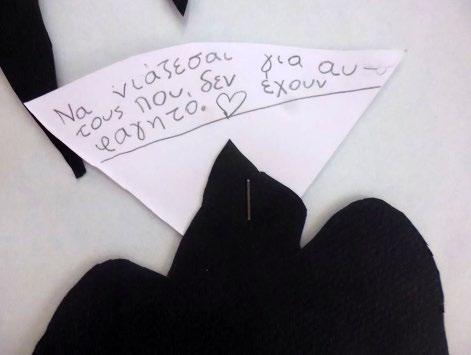 Να νιάζεσαι για αυ-
τους που, δεν έχουν
φαγητο. ♡